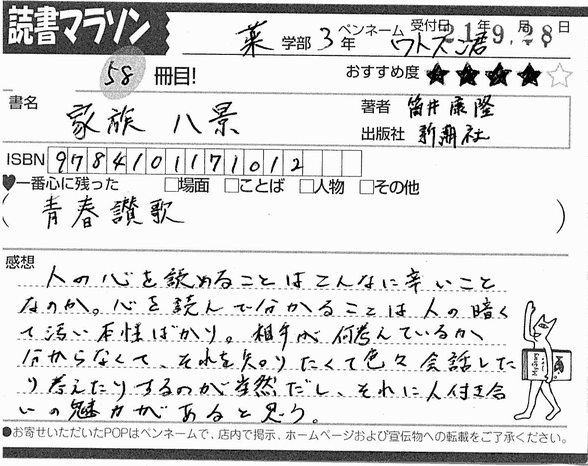 読書マラソン
薬 学部 3 年 ペンネーム ワトスン君 受付日 21年 9月 28日
58 冊目! おすすめ度 ★★★★☆
書名 家族八景
著者 筒井康隆
出版社 新潮社
ISBN 9784101171012
♥一番心に残った □場面 □ことば □人物 □その他
(青春讃歌)
感想
人の心を読めることはこんなに辛いこと
なのか。心を読んで分かることは人の暗く
て汚い本性ばかり。相手が何考えているか
分からなくて、それを知りたくて色々会話した
り考えたりするのが当然だし、それに人付き合
いの魅力があると思う。
●お寄せいただいたPOPはペンネームで、店内で掲示、ホームページおよび宣伝物への転載をご了承ください。